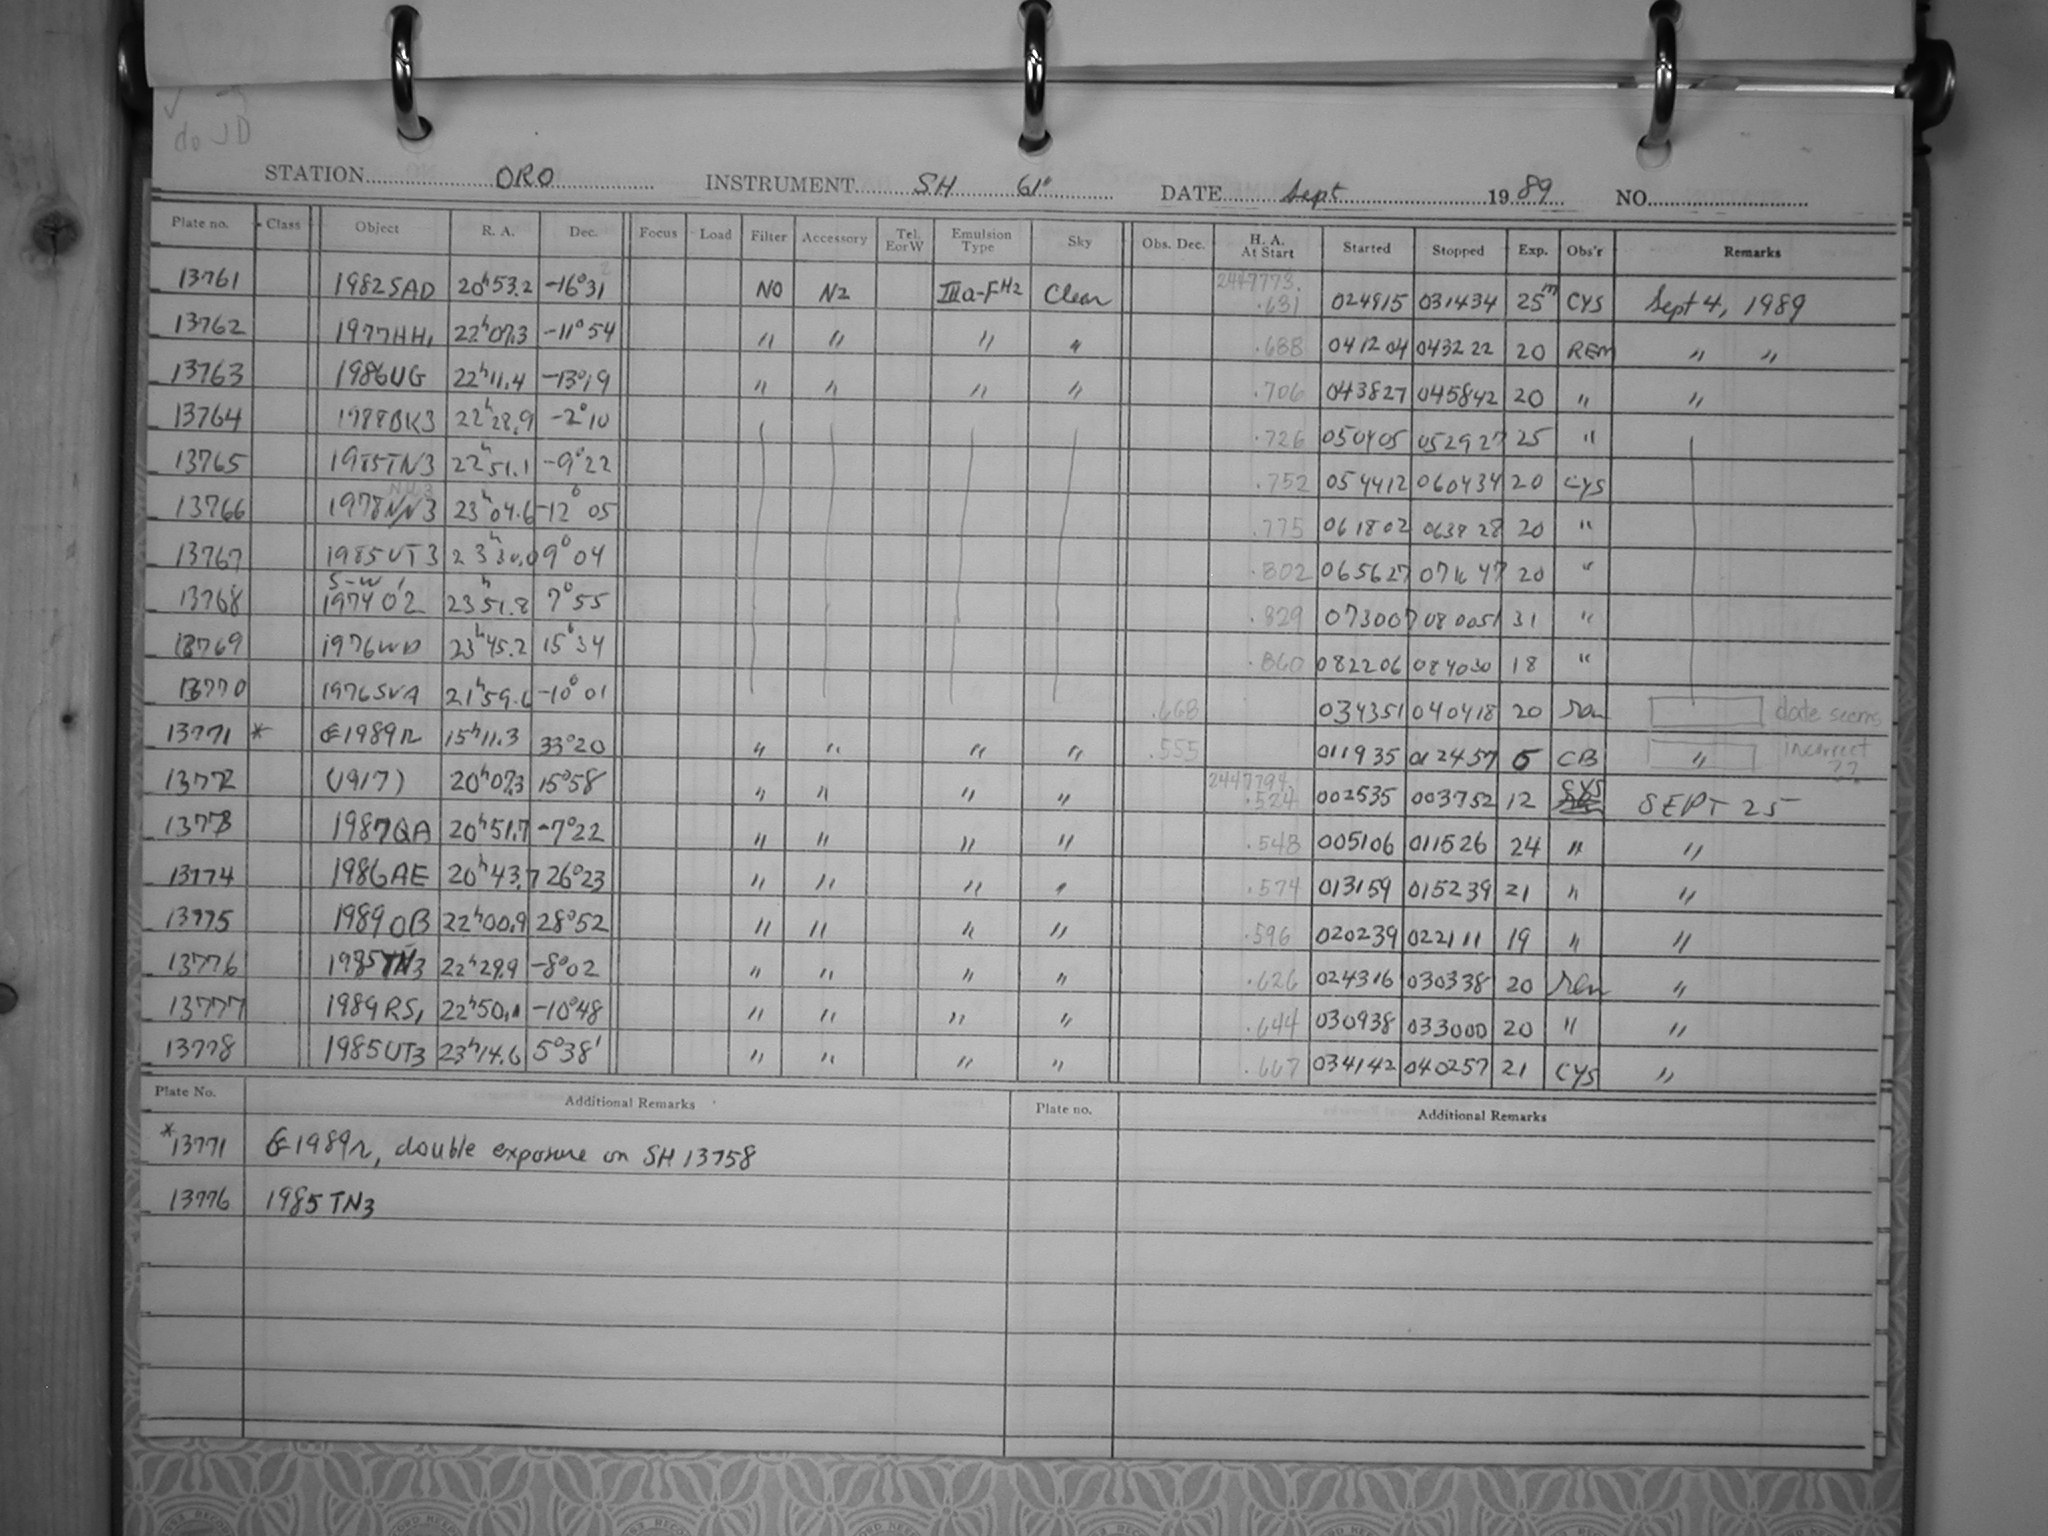 do JD
STATION ORO INSTRUMENT SH 61" DATE Sept 1989 NO.
Plate no. Class Object R. A. Dec. Focus Load Filter Accessory Tel. E or W Emulsion Type Sky Obs. Dec. H. A. At Start Started Stopped Exp. Obs'r Remarks
13761 1982SAD 20h53.2 -16°31 NO N2 IIIa-F H2 Clear 2447773. .631 024915 031434 25m CYS Sept 4, 1989
13762 1977HH1 22h07.3 -11°54 " " " " .688 041204 043222 20 REM " "
13763 1986UG 22h11.4 -13°19 " " " " .706 043827 045842 20 " "
13764 1988BK3 22h28.9 -2°10 .726 050405 052927 25 "
13765 1985TN3 22h51.1 -9°22 .752 054412 060434 20 CYS
13766 1978NN3 23h04.6 -12°05 .775 061802 063828 20 "
13767 1985UT3 23h30.0 9°04 .802 065627 071647 20 "
13768 S-W 1 1974 O2 23h51.8 7°55 .829 073007 080051 31 "
13769 1976WD 23h45.2 15°34 .860 082206 084030 18 "
13770 1976SVA 21h59.6 -10°01 .668 034351 040418 20 rem date seems
13771 * 1989r 15h11.3 33°20 " " " " .555 011935 012457 5 CB " incorrect ??
13772 (1917) 20h07.3 15°58 " " " " 2447794. .524 002535 003752 12 CYS SEPT 25
13773 1987QA 20h51.7 -7°22 " " " " .548 005106 011526 24 " "
13774 1986AE 20h43.7 26°23 " " " " .574 013159 015239 21 " "
13775 1989OB 22h00.9 28°52 " " " " .596 020239 022111 19 " "
13776 1985TN3 22h29.9 -8°02 " " " " .626 024316 030338 20 rem "
13777 1989RS1 22h50.1 -10°48 " " " " .644 030938 033000 20 " "
13778 1985UT3 23h14.6 5°38' " " " " .667 034142 040257 21 CYS "
Plate No. Additional Remarks Plate no. Additional Remarks
*13771 1989r, double exposure on SH 13758
13776 1985 TN3